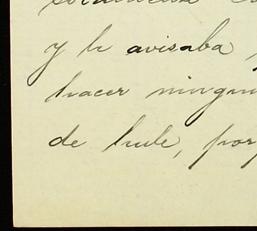 y le avisaba
hacer ningun
de hule, por